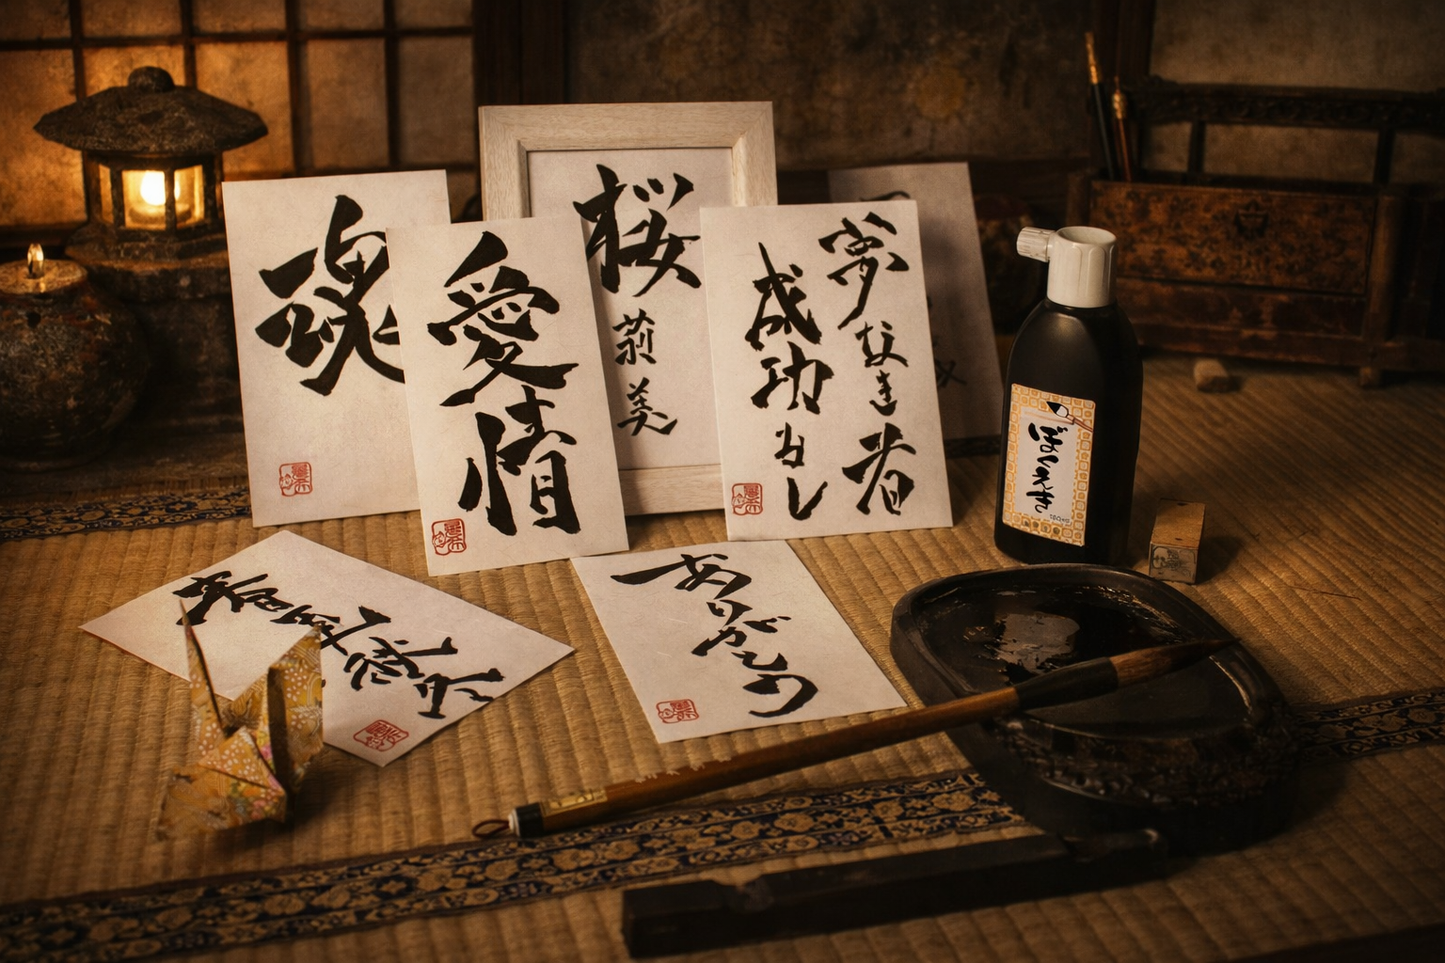 魂
愛情
桜
莉美
夢なき者
成功なし
ありがとう
ぼくえき